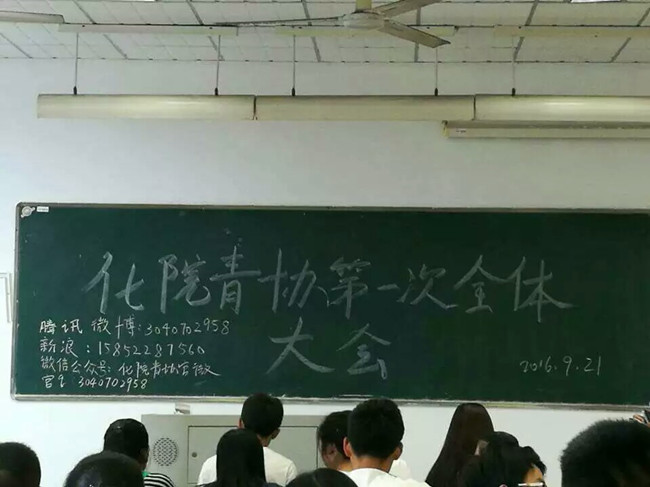 化院青协第一次全体
大会
腾讯微博:3040702958
新浪:15852287560
微信公众号:化院青协官微
官Q 3040702958
2016.9.21